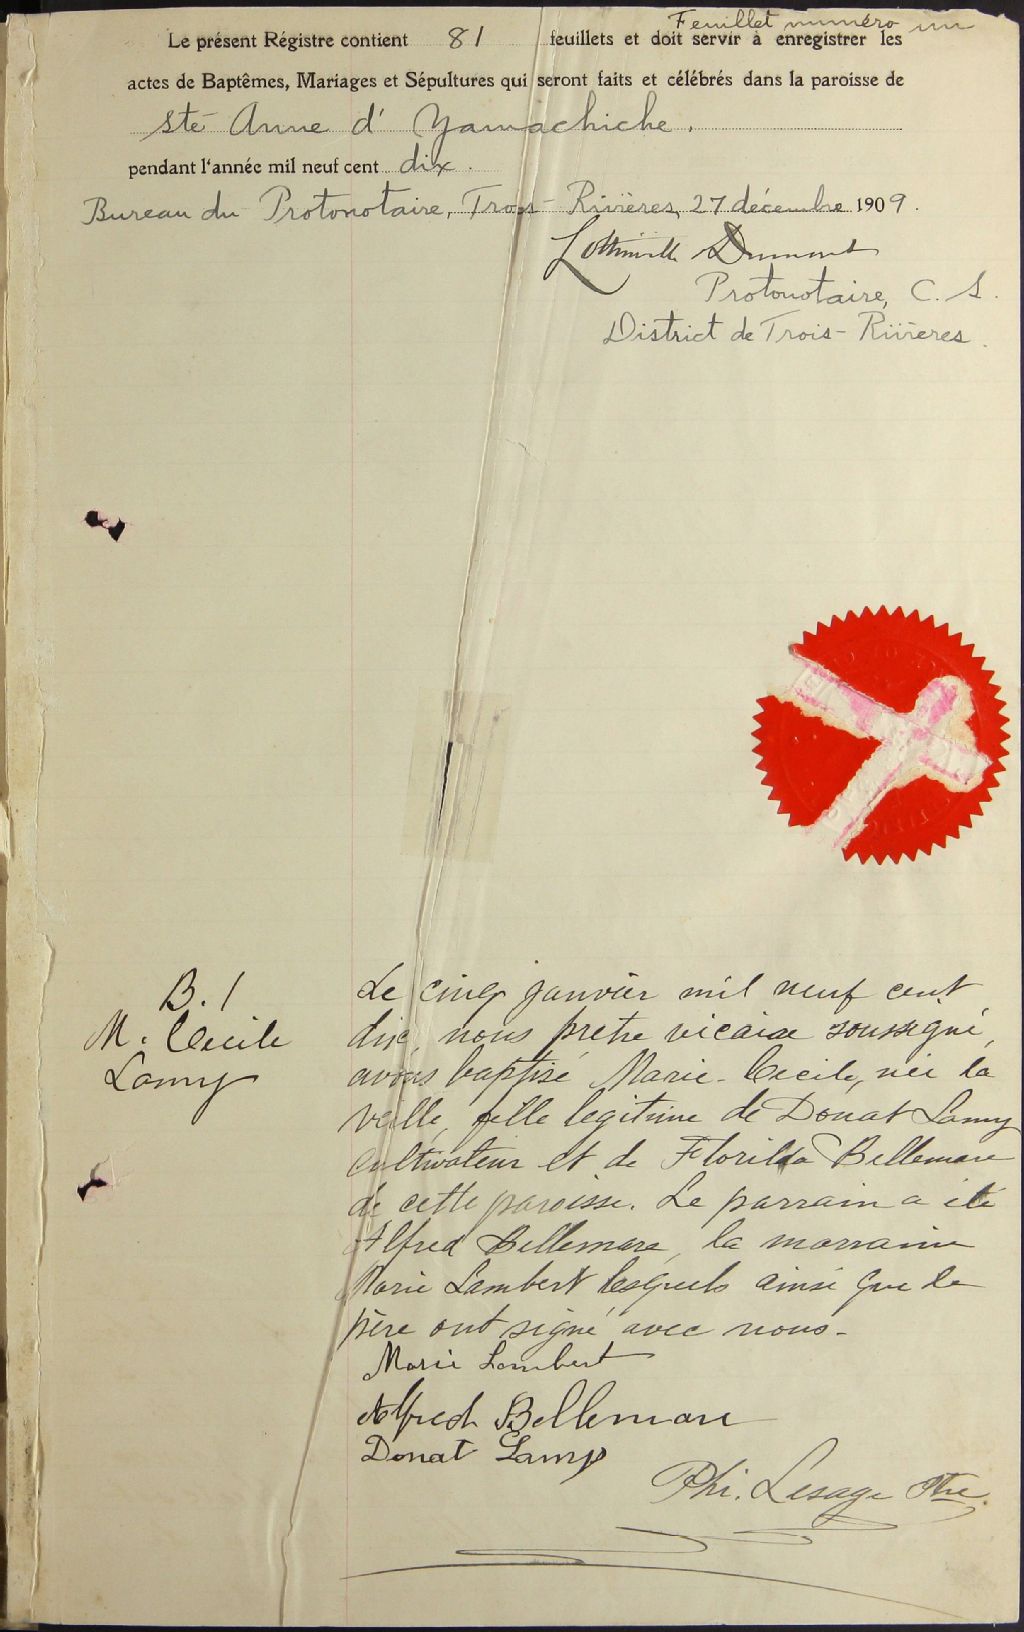 Feuillet numéro un
Le présent Régistre contient 81 feuillets et doit servir à enregistrer les
actes de Baptêmes, Mariages et Sépultures qui seront faits et célébrés dans la paroisse de
Ste Anne d' Yamachiche.
pendant l'année mil neuf cent dix.
Bureau du Protonotaire, Trois-Rivières, 27 décembre 1909.
Dumont
Protonotaire, C. S.
District de Trois-Rivières.
B. 1
M. Cécile
Lamy
Le cinq janvier mil neuf cent
dix, nous prêtre vicaire soussigné,
avons baptisé Marie-Cecile, née la
veille, fille legitime de Donat Lamy
cultivateur et de Florilda Bellemare
de cette paroisse. Le parrain a été
Alfred Bellemare, la marraine
Marie Lambert lesquels ainsi que le
père ont signé avec nous-
Marie Lambert
Alfred Bellemare
Donat Lamy
Phi. Lesage Ptre.